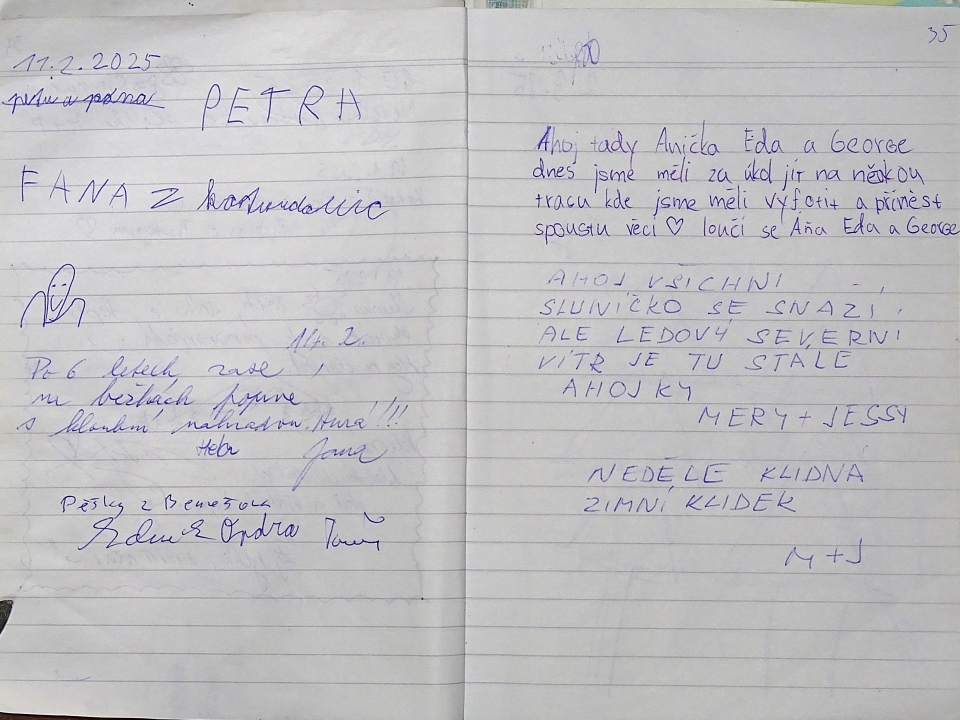 11.2.2025
PETRA
FANA Z
14. 2.
Po 6 letech zase
na běžkách poprve
s kloubní náhradou. Hurá!!!
Jana
Pěšky z Benešova
Zdeněk Ondra Tomáš
35
Ahoj tady Anička Eda a George
dnes jsme měli za úkol jít na nějakou
tracu kde jsme měli vyfotit a přinést
spoustu věcí ♡ loučí se Áňa Eda a George
AHOJ VŠICHNI
SLUNÍČKO SE SNAŽÍ,
ALE LEDOVÝ SEVERNÍ
VÍTR JE TU STÁLE
AHOJKY
MERY + JESSY
NEDĚLE KLIDNÁ
ZIMNÍ KLIDEK
M + J